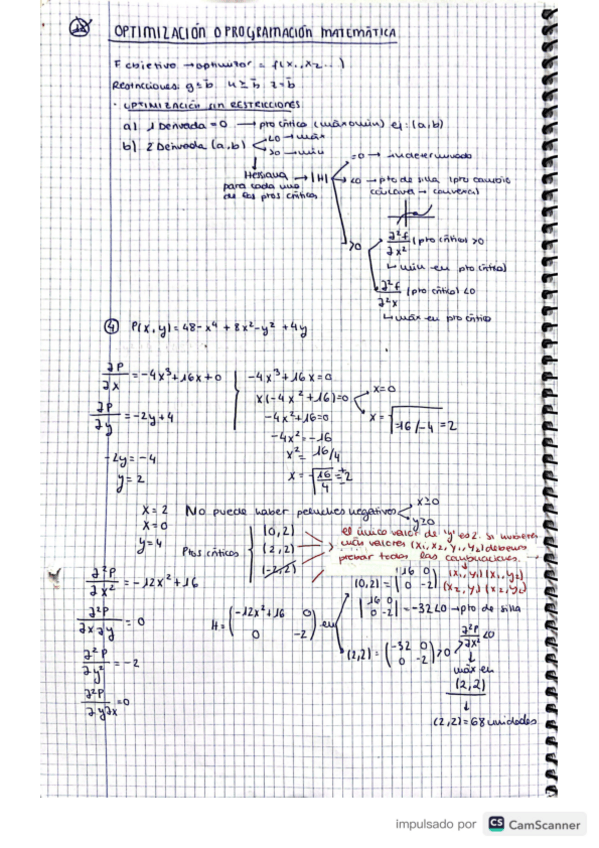 OPTIMIZACIÓN O PROGRAMACIÓN MATEMÁTICA
F objetivo → optimizar = f(x₁, x₂ ...)
Restricciones: g ≤ b u ≥ b z = b
· OPTIMIZACIÓN SIN RESTRICCIONES
a) 1 Derivada = 0 → pto crítico (máx o min) ej: (a,b)
b) 2 Derivada (a,b)
<0 → máx
>0 → min
Hessiana → |H|
para cada uno
de los ptos críticos
=0 → indeterminado
<0 → pto de silla (pto cambia
cóncava → convexa)
>0
∂²f/∂x² (pto crítico) >0
↳ min en pto crítico)
∂²f/∂²x (pto crítico) <0
↳ máx en pto crítico
④ P(x,y) = 48 - x⁴ + 8x² - y² + 4y
∂P/∂x = -4x³ + 16x + 0
∂P/∂y = -2y + 4
-2y = -4
y = 2
-4x³ + 16x = 0
x(-4x² + 16) = 0
x = 0
x = √-16/-4 = 2
-4x² + 16 = 0
-4x² = -16
x² = 16/4
x = √16/4 = ±2
x = 2
x = 0
y = 4
No puede haber peluches negativos
x ≥ 0
y ≥ 0
Ptos críticos
(0,2)
(2,2)
(-2,2)
el único valor de 'y' es 2. Si hubieres
más valores (x₁, x₂, y₁, y₂) debemos
probar todas las combinaciones.
(x₁, y₁) (x₁, y₂)
(x₂, y₁) (x₂, y₂)
∂²P/∂x² = -12x² + 16
∂²P/∂x∂y = 0
∂²P/∂y² = -2
∂²P/∂y∂x = 0
H = (-12x²+16 0
0 -2) en
(0,2) = |16 0
0 -2|
|16 0
0 -2| = -32 <0 → pto de silla
(2,2) = (-32 0
0 -2) >0
∂²P/∂x² <0
↓
máx en
(2,2)
↓
(2,2) = 68 unidades
impulsado por CS CamScanner